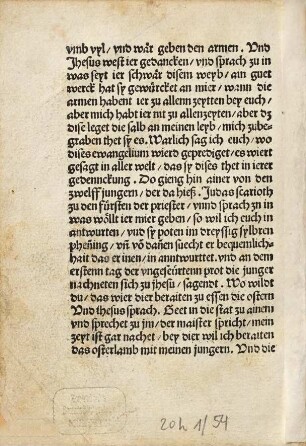 vmb vyl/ vnd wår geben den armen. Vnd
Jhesus west ier gedancken/ vnd sprach zu in
was seyt ier schwår disem weyb/ ain guet
werck hat sy gewürcket an mier/ wann die
armen habent ier zu allenn zeytten bey euch/
aber mich habt ier nit zu allenzeyten/ aber dz
dise leget die salb an meinen leyb/ mich zube-
graben thet sy es. Warlich sag ich euch/ wo
dises ewangelium wierd geprediget/ es wiert
gesagt in aller welt/ das sy dises thet in ieret
gedennckung. Do gieng hin ainer von den
zwelff jungern/ der da hieß. Judas scarioth
zu den fürsten der priester/ vnnd sprach zu in
was wöllt ier mier geben/ so wil ich euch in
antwurten/ vnd sy poten im dreyssig sylbren
phening/ vn̄ vō danen suecht er bequemlich-
hait das er inen/ in anntwurttet. vnd an dem
erstenn tag der vngeseürtenn prot die junger
nachneten sich zu jhesu/ sagent. Wo wildt
du/ das wier dier beraiten zu essen die ostern
Vnd jhesus sprach. Geet in die stat zu ainem
vnd sprechet zu jm/ der maister spricht/ mein
zeyt ist gar nachet/ bey dier wil ich beraiten
das osterlamb mit meinen jungern. Vnd die
20h 1/54